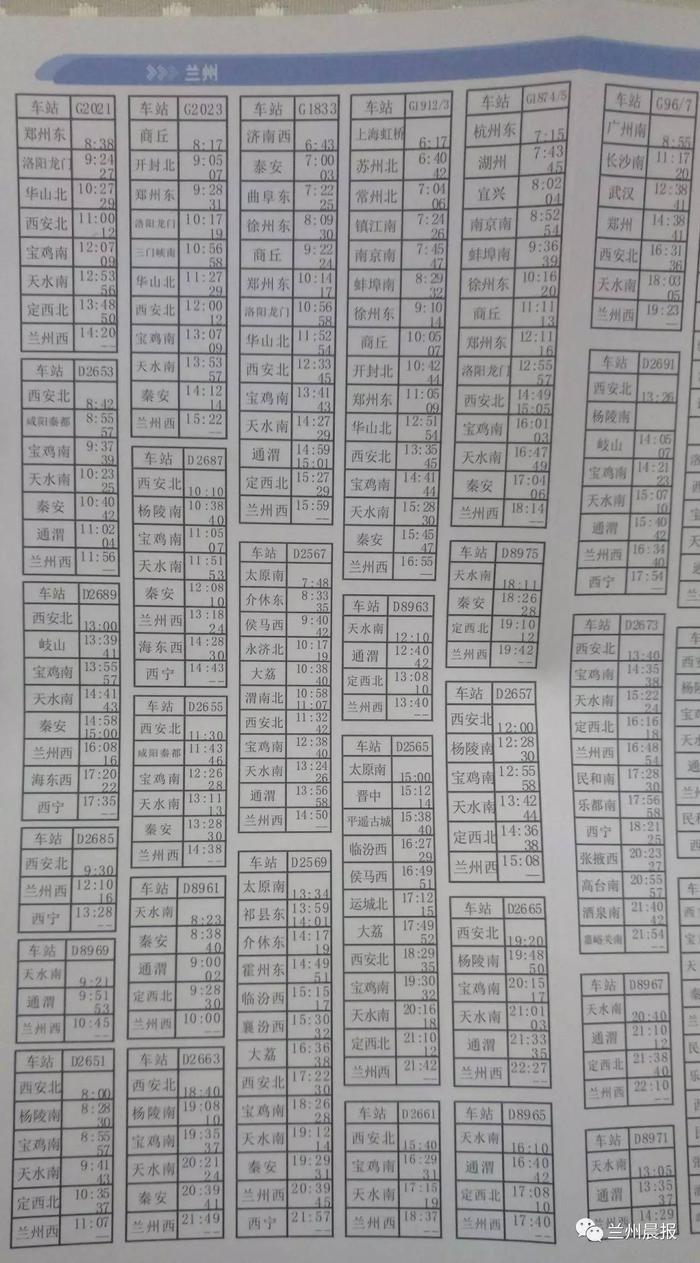 兰州
车站 G2021
郑州东 8:38
洛阳龙门 9:24 27
华山北 10:27 29
西安北 11:00 12
宝鸡南 12:07 09
天水南 12:53 56
定西北 13:48 50
兰州西 14:20 --
车站 D2653
西安北 8:42
咸阳秦都 8:55 57
宝鸡南 9:37 39
天水南 10:23 25
秦安 10:40 42
通渭 11:02 04
兰州西 11:56 --
车站 D2689
西安北 13:00
岐山 13:39 41
宝鸡南 13:55 57
天水南 14:41 43
秦安 14:58 15:00
兰州西 16:08 16
海东西 17:20 22
西宁 17:35 --
车站 D2685
西安北 9:30
兰州西 12:10 16
西宁 13:28 --
车站 D8969
天水南 9:21
通渭 9:51 53
兰州西 10:45 --
车站 D2651
西安北 8:00
杨陵南 8:28 30
宝鸡南 8:55 57
天水南 9:41 43
定西北 10:35 37
兰州西 11:07 --
车站 G2023
商丘 8:17
开封北 9:05 07
郑州东 9:28 31
洛阳龙门 10:17 19
三门峡南 10:56 58
华山北 11:27 29
西安北 12:00 12
宝鸡南 13:07 09
天水南 13:53 57
秦安 14:12 14
兰州西 15:22 --
车站 D2687
西安北 10:10
杨陵南 10:38 40
宝鸡南 11:05 07
天水南 11:51 53
秦安 12:08 10
兰州西 13:18 24
海东西 14:28 30
西宁 14:43 --
车站 D2655
西安北 11:30
咸阳秦都 11:43 46
宝鸡南 12:26 28
天水南 13:11 13
秦安 13:28 30
兰州西 14:38 --
车站 D8961
天水南 8:23
秦安 8:38 40
通渭 9:00 02
定西北 9:28 30
兰州西 10:00 --
车站 D2663
西安北 18:40
杨陵南 19:08 10
宝鸡南 19:35 37
天水南 20:21 24
秦安 20:39 41
兰州西 21:49 --
车站 G1833
济南西 6:43
泰安 7:00 03
曲阜东 7:22 25
徐州东 8:09 30
商丘 9:22 24
郑州东 10:14 17
洛阳龙门 10:56 58
华山北 11:52 54
西安北 12:33 45
宝鸡南 13:41 43
天水南 14:27 29
通渭 14:59 15:01
定西北 15:27 29
兰州西 15:59 --
车站 D2567
太原南 7:48
介休东 8:33 35
侯马西 9:40 42
永济北 10:17 19
大荔 10:38 40
渭南北 10:58 11:07
西安北 11:32 42
宝鸡南 12:38 40
天水南 13:24 26
通渭 13:56 58
兰州西 14:50 --
车站 D2569
太原南 13:34
祁县东 13:59 14:01
介休东 14:17 19
霍州东 14:49 51
临汾西 15:15 17
襄汾西 15:30 32
大荔 16:36 38
西安北 17:22 30
宝鸡南 18:26 28
天水南 19:12 14
秦安 19:29 31
兰州西 20:39 45
西宁 21:57 --
车站 G1912/3
上海虹桥 6:17
苏州北 6:40 42
常州北 7:04 06
镇江南 7:24 26
南京南 7:45 47
蚌埠南 8:29 32
徐州东 9:10 14
商丘 10:05 07
开封北 10:42 44
郑州东 11:05 09
华山北 12:51 54
西安北 13:35 45
宝鸡南 14:41 44
天水南 15:28 30
秦安 15:45 47
兰州西 16:55 --
车站 D8963
天水南 12:10
通渭 12:40 42
定西北 13:08 10
兰州西 13:40 --
车站 D2565
太原南 15:00
晋中 15:12 14
平遥古城 15:38 40
临汾西 16:27 29
侯马西 16:49 51
运城北 17:12 15
大荔 17:49 52
西安北 18:29 35
宝鸡南 19:30 32
天水南 20:16 18
定西北 21:10 12
兰州西 21:42 --
车站 D2661
西安北 15:40
宝鸡南 16:29 31
天水南 17:15 19
兰州西 18:37 --
车站 G1874/5
杭州东 7:15
湖州 7:43 45
宜兴 8:02 04
南京南 8:52 54
蚌埠南 9:36 39
徐州东 10:16 20
商丘 11:11 13
郑州东 12:11 16
洛阳龙门 12:55 57
西安北 14:49 15:05
宝鸡南 16:01 03
天水南 16:47 49
秦安 17:04 06
兰州西 18:14 --
车站 D8975
天水南 18:11
秦安 18:26 28
定西北 19:10 12
兰州西 19:42 --
车站 D2657
西安北 12:00
杨陵南 12:28 30
宝鸡南 12:55 58
天水南 13:42 44
定西北 14:36 38
兰州西 15:08 --
车站 D2665
西安北 19:20
杨陵南 19:48 50
宝鸡南 20:15 17
天水南 21:01 03
通渭 21:33 35
兰州西 22:27 --
车站 D8965
天水南 16:10
通渭 16:40 42
定西北 17:08 10
兰州西 17:40 --
车站 G96/7
广州南 8:55
长沙南 11:17 20
武汉 12:38 41
郑州 14:38 41
西安北 16:31 36
天水南 18:03 05
兰州西 19:23 --
车站 D2691
西安北 13:26
杨陵南
岐山 14:05 07
宝鸡南 14:21 23
天水南 15:07 10
通渭 15:40 42
兰州西 16:34 40
西宁 17:54 --
车站 D2673
西安北 13:40
宝鸡南 14:35 38
天水南 15:22 24
定西北 16:16 18
兰州西 16:48 54
民和南 17:28 30
乐都南 17:56 58
西宁 18:21 25
张掖西 20:23 27
高台南 20:55 57
酒泉南 21:40 42
嘉峪关南 21:54 --
车站 D8967
天水南 20:40
通渭 21:10 12
定西北 21:38 40
兰州西 22:10 --
车站 D8971
天水南 13:05
通渭 13:35 37
兰州西 14:29 --
兰州晨报